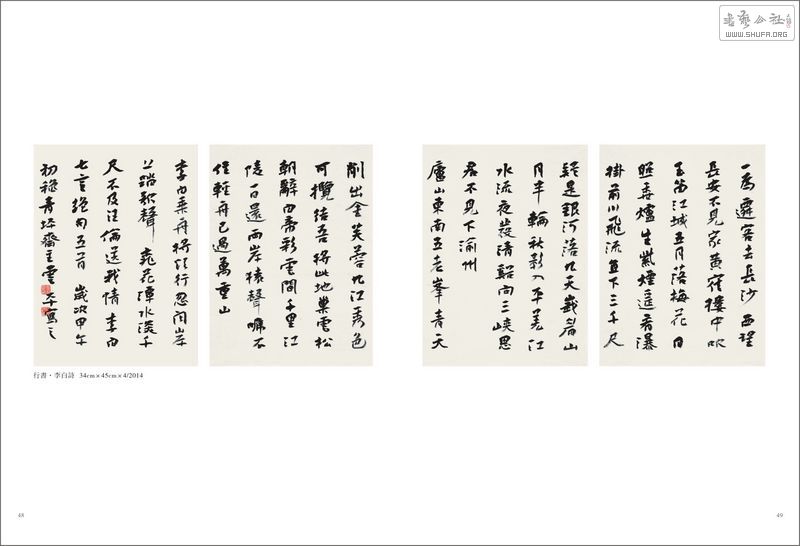 書藝公社
WWW.SHUFA.ORG
一為遷客去長沙 西望
長安不見家黃鶴樓中吹
玉笛江城五月落梅花 日
照香爐生紫煙遙看瀑
掛前川飛流直下三千尺
疑是銀河落九天峨眉山
月半輪秋影入平羌江
水流夜發清谿向三峽思
君不見下渝州
廬山東南五老峯青天
削出金芙蓉九江秀色
可攬結吾將此地巢雲松
朝辭白帝彩雲間千里江
陵一日還兩岸猿聲啼不
住輕舟已過萬重山
李白乘舟將欲行忽聞岸
上踏歌聲 桃花潭水深千
尺不及汪倫送我情 李白
七言絕句五首 歲次甲午
初青齋主雲平寫之
行書・李白詩 34cm×45cm×4/2014
48
49